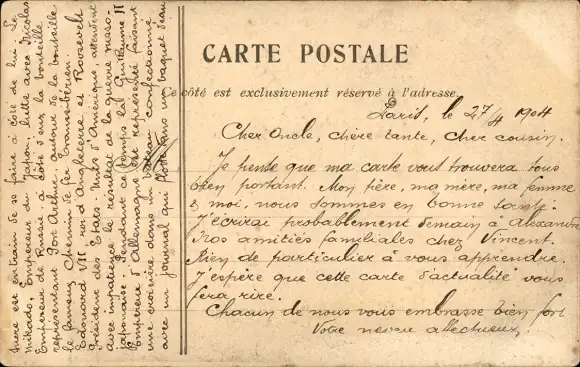 CARTE POSTALE
Ce côté est exclusivement réservé à l'adresse
Paris, le 27/4 1904
Cher Oncle, chère tante, cher cousin.
Je pense que ma carte vous trouvera tous
bien portant. Mon père, ma mère, ma femme
& moi, nous sommes en bonne santé.
J'écrirai probablement demain à Alexandre
Nos amitiés familiales chez Vincent.
Rien de particulier à vous apprendre.
J'espère que cette carte d'actualité vous
fera rire.
Chacun de nous vous embrasse bien fort
Votre neveu affectueux.
est en train de se faire à côté de lui. Le
Mikado, Empereur du Japon, lutte avec Nicolas
Empereur de Russie à côté d'eux la bouteille
représentant Port Arthur autour de la bouteille
le fameux Chemin de fer Transsibérien.
Edouard VII roi d'Angleterre et Roosevelt
président des Etats-Unis d'Amérique, attendent
avec impatience le résultat de la guerre russo-
japonaise. Pendant ce temps là Guillaume II
Empereur d'Allemagne est représenté faisant
une croisière dans un bateau confectionné
avec un journal qui flotte dans un baquet d'eau